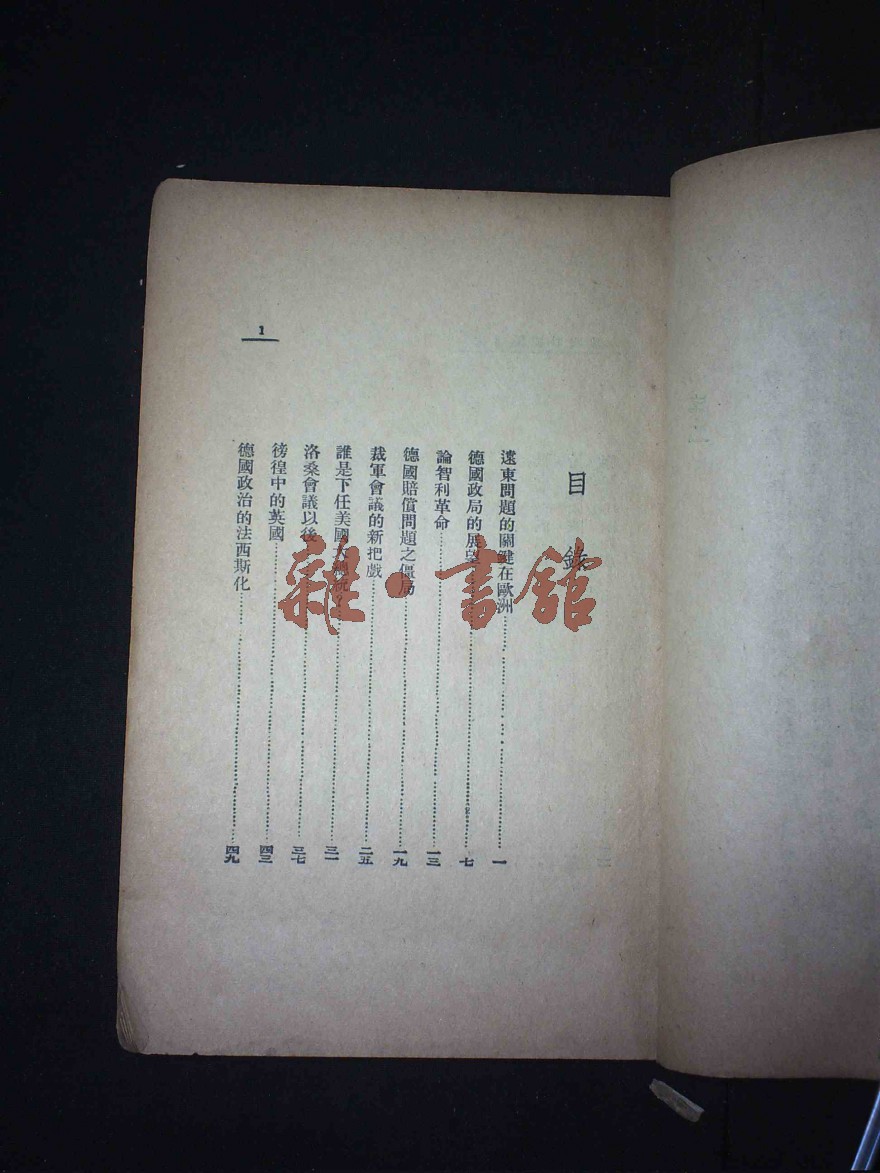 1
目錄
遠東問題的關鍵在歐洲……一
德國政局的展望……七
論智利革命……一三
德國賠償問題之僵局……一九
裁軍會議的新把戲……二五
誰是下任美國大總統？……三一
洛桑會議以後……三七
徬徨中的英國……四三
德國政治的法西斯化……四九
雜·書館